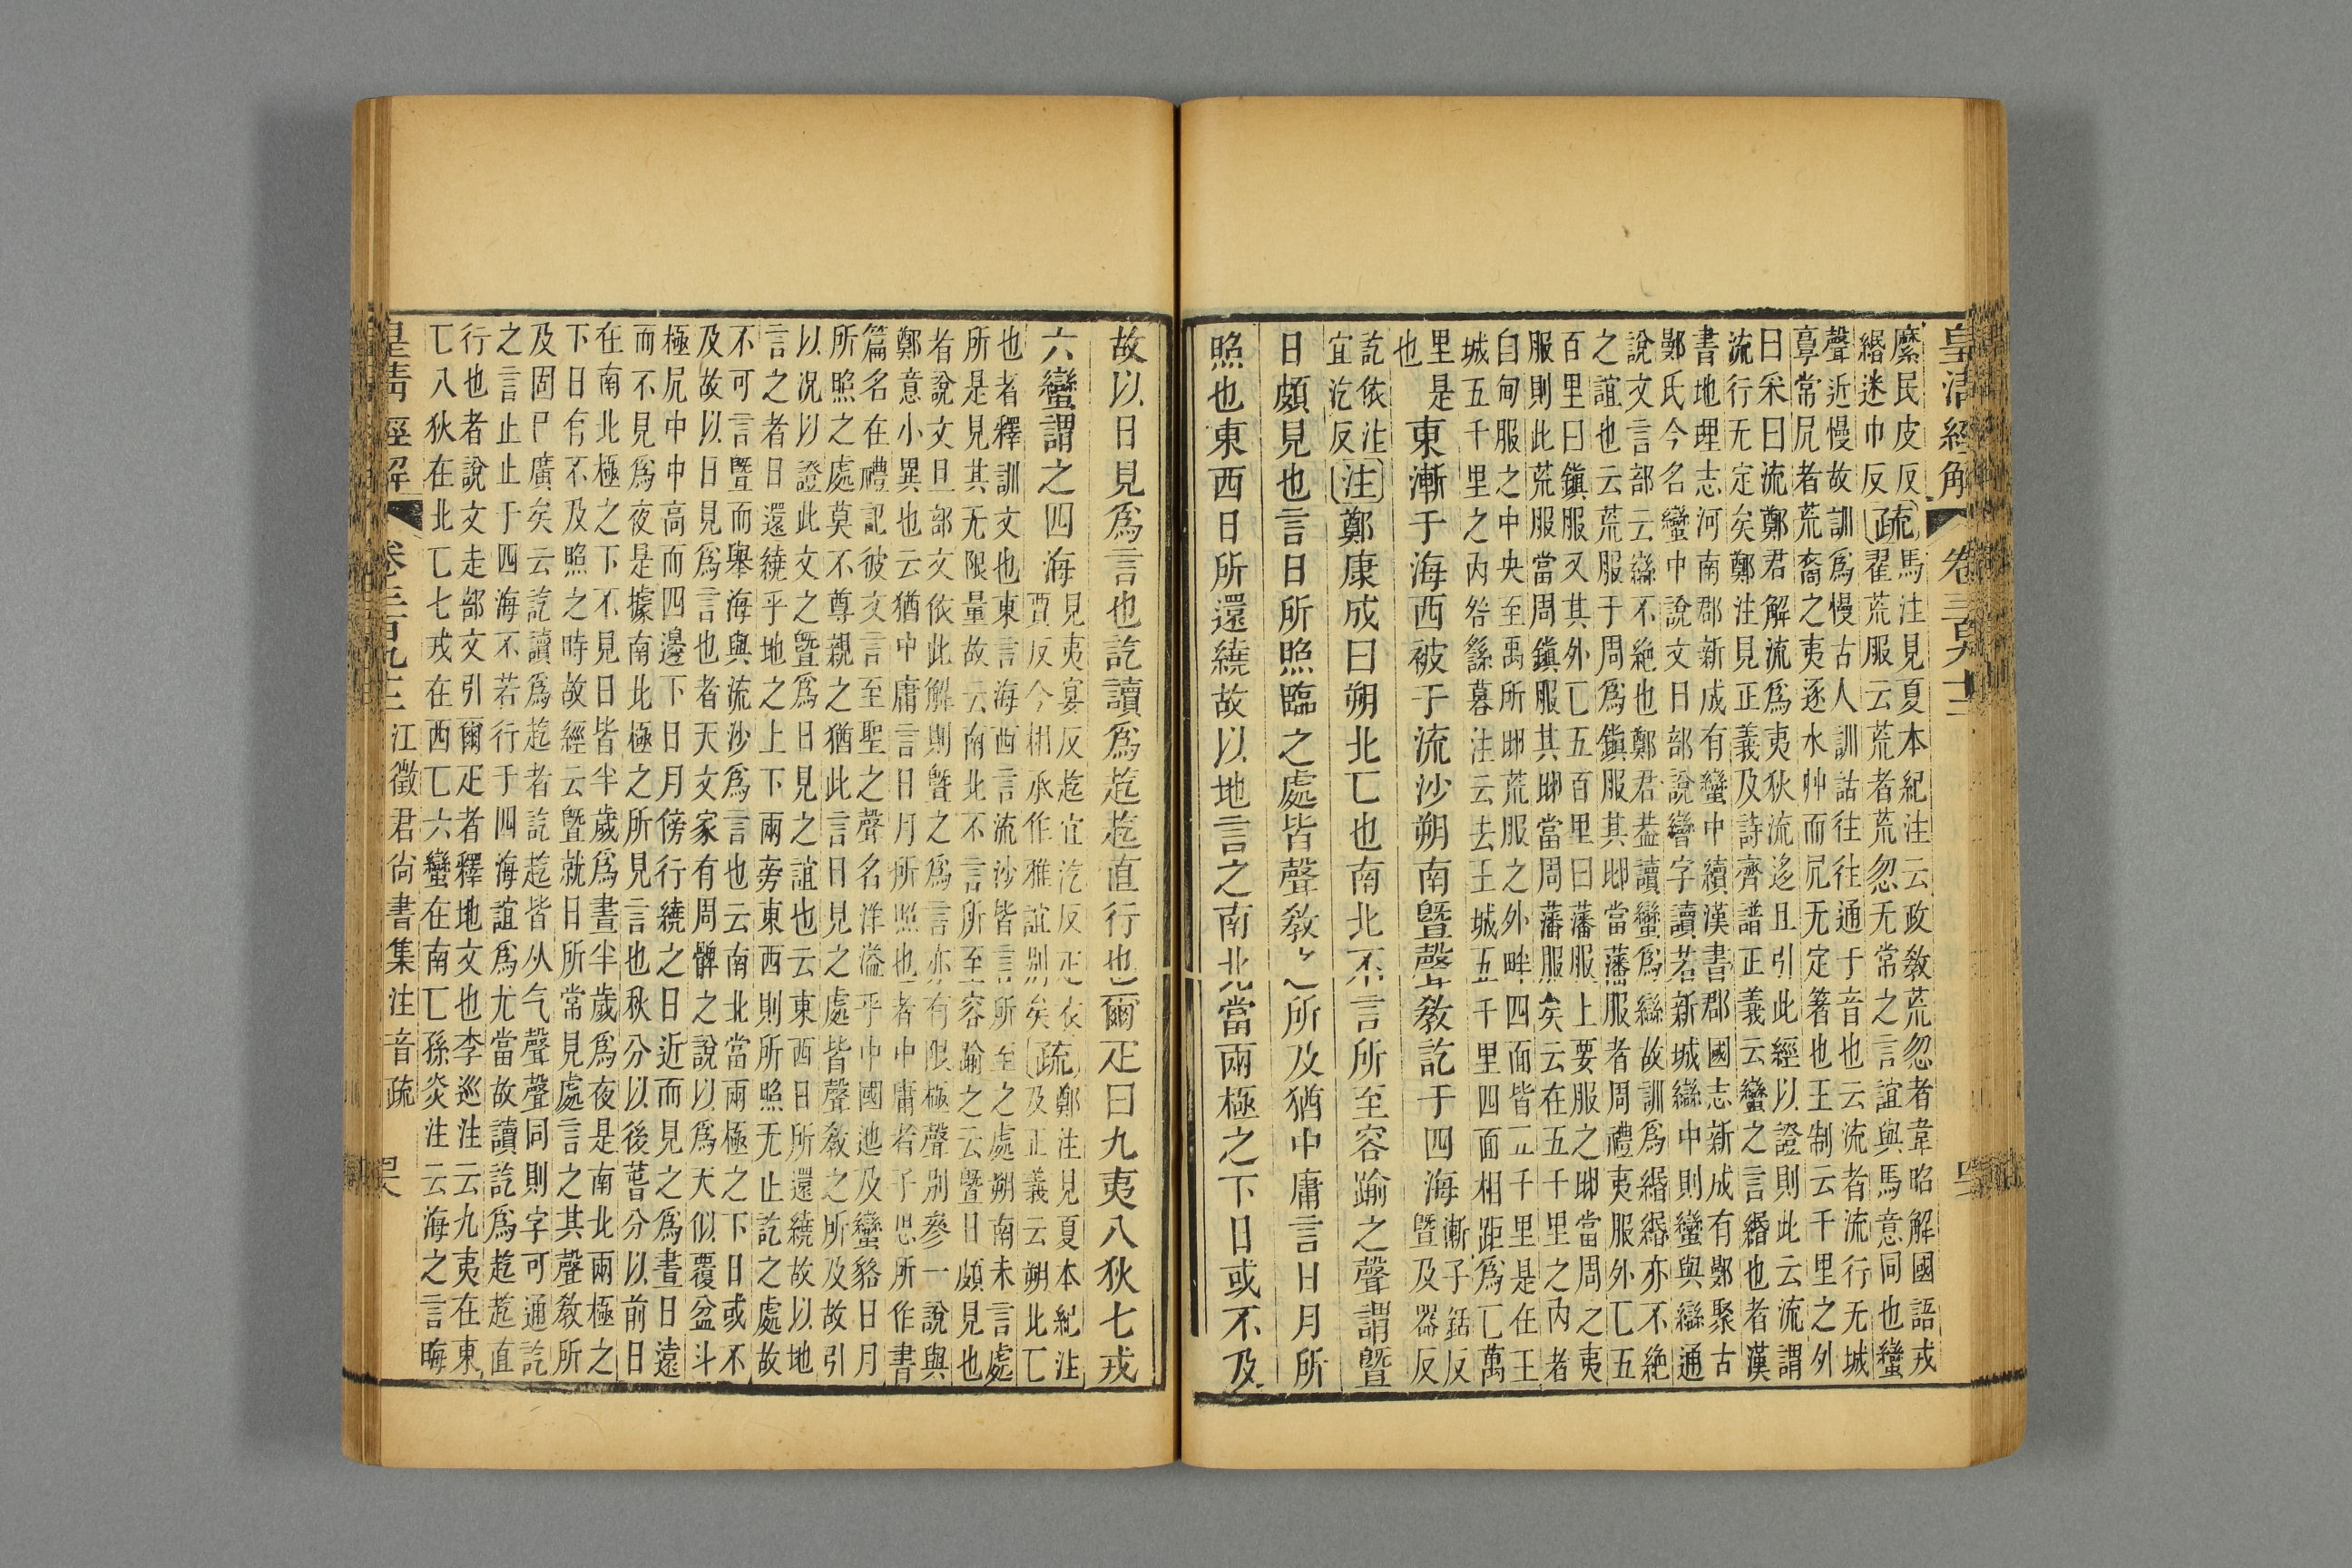 皇清經解 卷三百九十三
縻民皮反
緡迷巾反
疏
馬注見夏本紀注云政敎荒忽者韋昭解國語戎
翟荒服云荒者荒忽无常之言誼與馬意同也蠻
聲近慢故訓爲慢古人訓詁往往通于音也云流者流行无城
𩫏常凥者荒裔之夷逐水艸而凥无定箸也王制云千里之外
曰采曰流鄭君解流爲夷狄流迻且引此經以證則此云流謂
流行无定矣鄭注見正義及詩齊譜正義云蠻之言緡也者漢
書地理志河南郡新成有蠻中續漢書郡國志新成有鄤聚古
鄤氏今名蠻中說文日部說曫字讀若新城䜌中則蠻與䜌通
說文言部云䜌不絶也鄭君葢讀蠻爲䜌故訓爲緡緡亦不絶
之誼也云荒服于周爲鎭服其當藩服者周禮夷服外匚五
百里曰鎭服又其外匚五百里曰藩服上要服之當周之夷
服則此荒服當周鎭服其當周藩服矣云在五千里之內者
自甸服之中央至禹所荒服之外畔四面皆二千里是在王
城五千里之內咎繇暮注云去王城五千里四面相距爲匚萬
里是
也
東漸于海西被于流沙朔南曁聲敎訖于四海
漸子銛反
曁及器反
訖依注
宜汔反
注鄭康成曰朔北匚也南北不言所至容踰之聲謂曁
日頗見也言日所照臨之處皆聲敎之所及猶中庸言日月所
照也東西日所還繞故以地言之南北當兩極之下日或不及
故以日見爲言也訖讀爲趌趌直行也爾疋曰九夷八狄七戎
六蠻謂之四海
見夷宴反趌宜汔反疋衣
賈反今相承作雅誼別矣
疏
鄭注見夏本紀注
及正義云朔北匚
也者釋訓文也東言海西言流沙皆言所至之處朔南未言處
所是見其无限量故云南北不言所至容踰之云曁日頗見也
者說文旦部文依此解則曁之爲言亦有限極聲別參一說與
鄭意小異也云猶中庸言日月所照也者中庸者子思所作書
篇名在禮記彼文言至聖之聲名洋溢乎中國迆及蠻貉日月
所照之處莫不尊親之猶此言日見之處皆聲敎之所及故引
以况以證此文之曁爲日見之誼也云東西日所還繞故以地
言之者日還繞乎地之上下兩旁東西則所照无止訖之處故
不可言曁而舉海與流沙爲言也云南北當兩極之下日或不
及故以日見爲言也者天文家有周髀之說以爲天似覆盆斗
極凥中中高而四邊下日月傍行繞之日近而見之爲晝日遠
而不見爲夜是據南北極之所見言也秋分以後萅分以前日
在南北極之下不見日皆半歲爲晝半歲爲夜是南北兩極之
下日有不及照之時故經云曁就日所常見處言之其聲敎所
及固已廣矣云訖讀爲趌者訖趌皆从气聲聲同則字可通訖
之言止止于四海不若行于四海誼爲尤當故讀訖爲趌趌直
行也者說文走部文引爾疋者釋地文也李巡注云九夷在東
匚八狄在北匚七戎在西匚六蠻在南匚孫炎注云海之言晦
皇清經解 卷三百九十三 江徵君尙書集注音疏